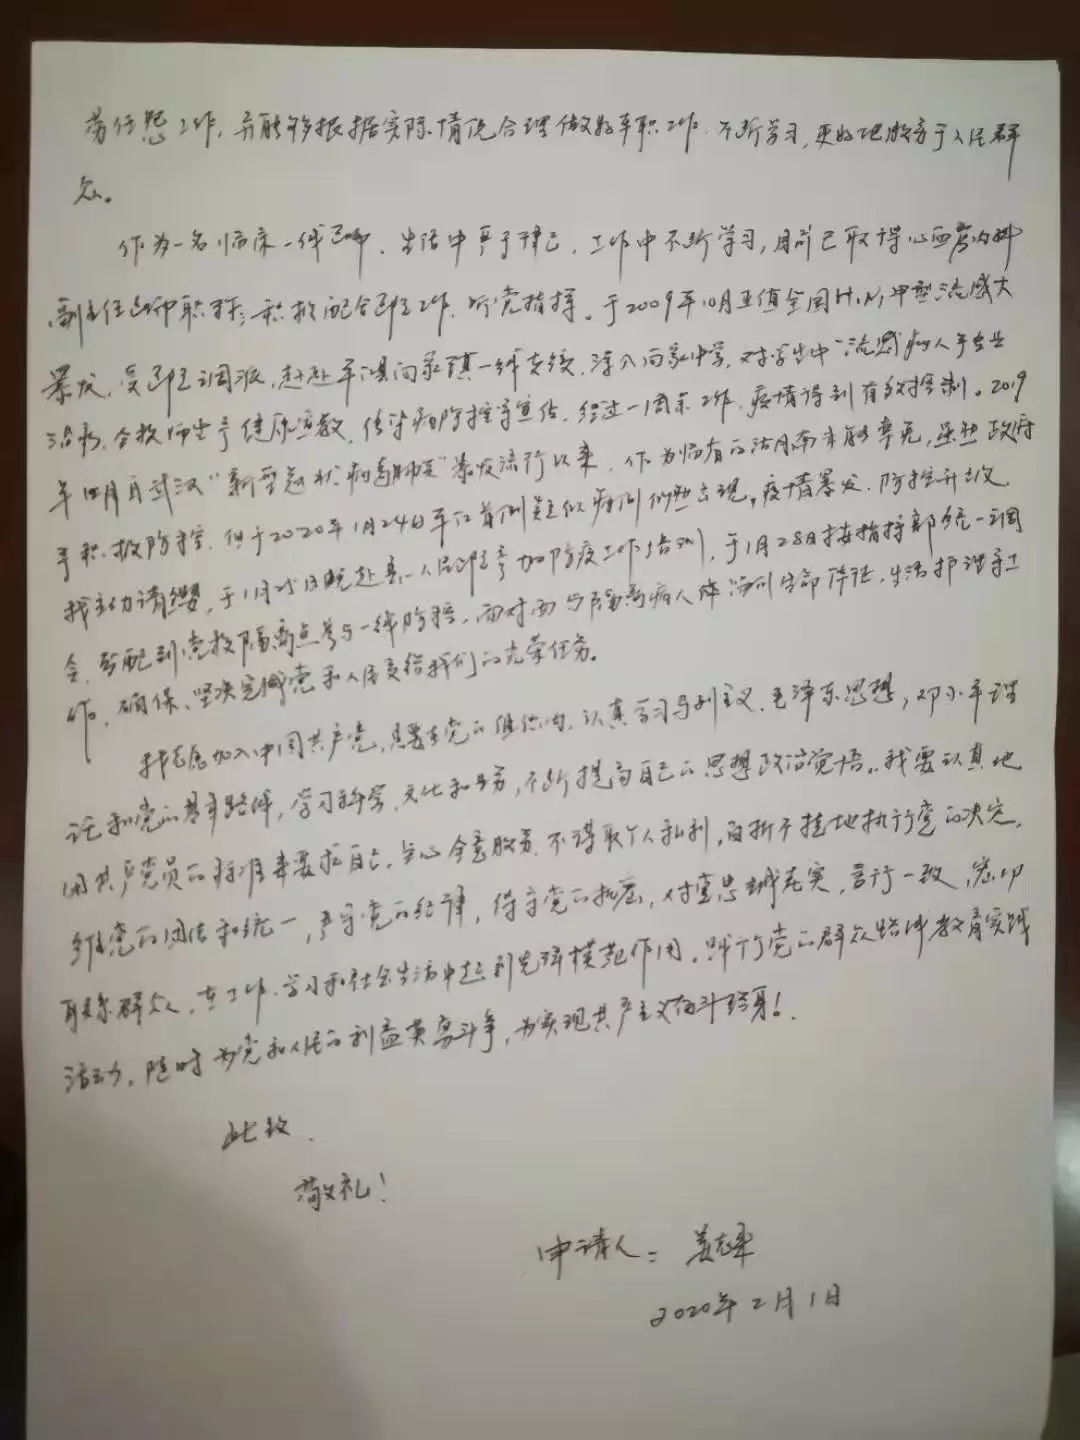 劳任怨工作,并能够根据实际情况合理做好本职工作.不断学习,更好地服务于人民群
众。
作为一名临床一线医师,生活中严于律己,工作中不断学习,目前已取得心血管内科
副主任医师职称;积极配合医院工作,听党指挥。于2009年10月正值全国H1N1甲型流感大
暴发,受医院调派,赶赴本县向家镇一线支援,深入向家中学,对学生中“流感”病人予专业
治疗,令教师生予健康宣教,传染病防控等宣传,经过一周余工作,疫情得到有效控制。2019
年12月自武汉“新型冠状病毒肺炎”暴发流行以来,作为临省的沽月南未能幸免,虽然政府
予积极防控,但于2020年1月24日本区首例疑似病例仍然出现,疫情暴发,防控升级
我主动请缨,于1月25日晚赴县人民医院参加防疫工作培训,于1月28日接指挥部统一调
令,分配到党校隔离点参与一线防控,面对面与隔离病人体测生命体征,生活护理等工
作。确保、坚决完成党和人民交给我们的光荣任务。
我志愿加入中国共产党,愿在党的组织内,认真学习马列主义、毛泽东思想,邓小平理
论和党的基本路线,学习科学、文化和业务,不断提高自己的思想政治觉悟。我要认真地
用共产党员的标准来要求自己,全心全意服务,不谋取个人私利,百折不挠地执行党的决定,
维党的团结和统一,严守党的纪律,保守党的秘密,对党忠诚老实,言行一致,密切
联系群众,在工作、学习和社会生活中起到先锋模范作用。践行党的群众路线教育实践
活动,随时为党和人民的利益英勇斗争,为实现共产主义奋斗终身!
此致
敬礼!
申请人:姜志军
2020年2月1日